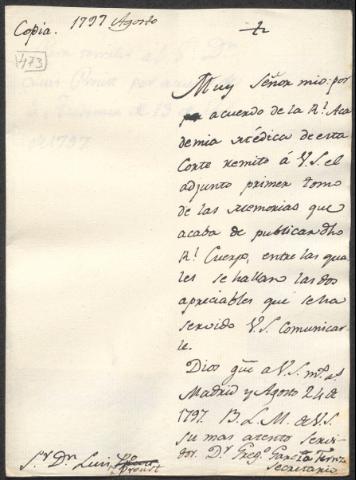 Copia. 1797 Agosto
473
Muy Señor mio: por
acuerdo de la Rl. Aca
demia Médica de esta
Corte remito á V.S. el
adjunto primer tomo
de las Memorias que
acaba de publicar dho
Rl. Cuerpo, entre las qua
les se hallan las dos
apreciables que se ha
servido V.S. comunicar
le.
Dios gue. á V.S. ms. as.
Madrid y Agosto 24 de
1797. B. L. M. de V.S.
su mas atento servi
dor. Dr. Grego. Garcia Fernz
Secretario
Sr. Dn. Luis
Proust